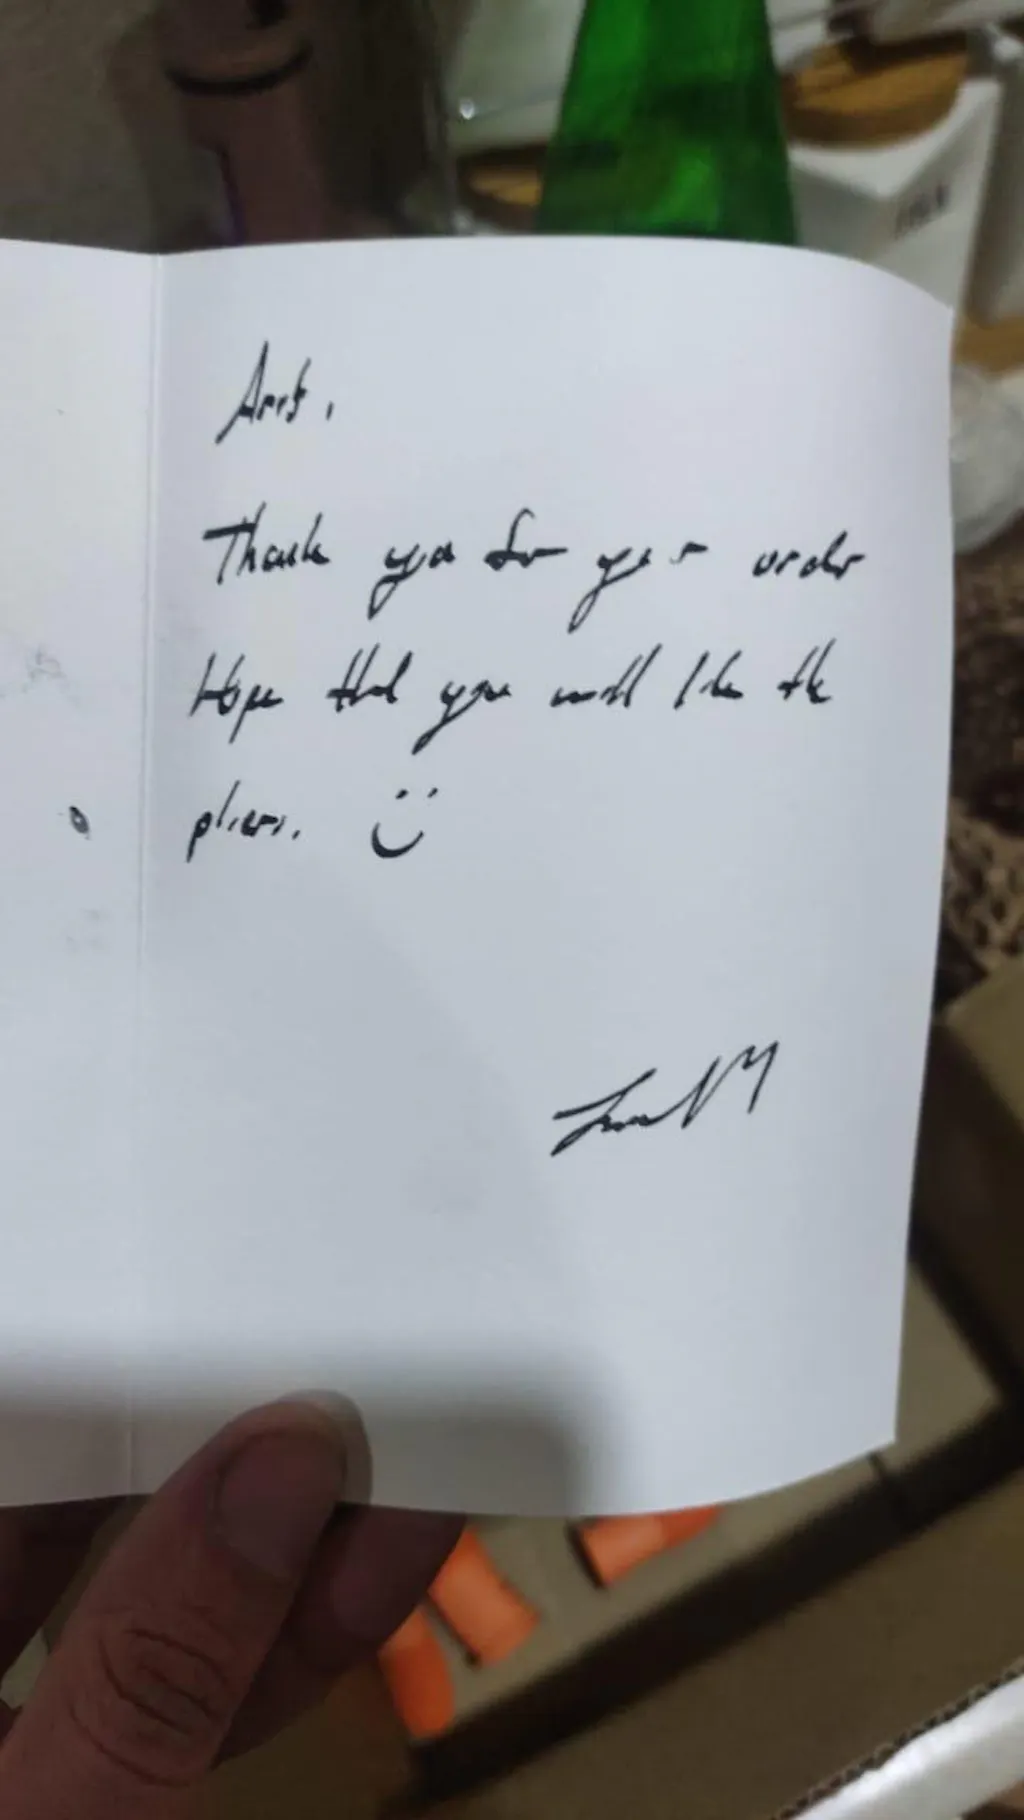 Thank you for your order
Hope that you will like the
pliers.